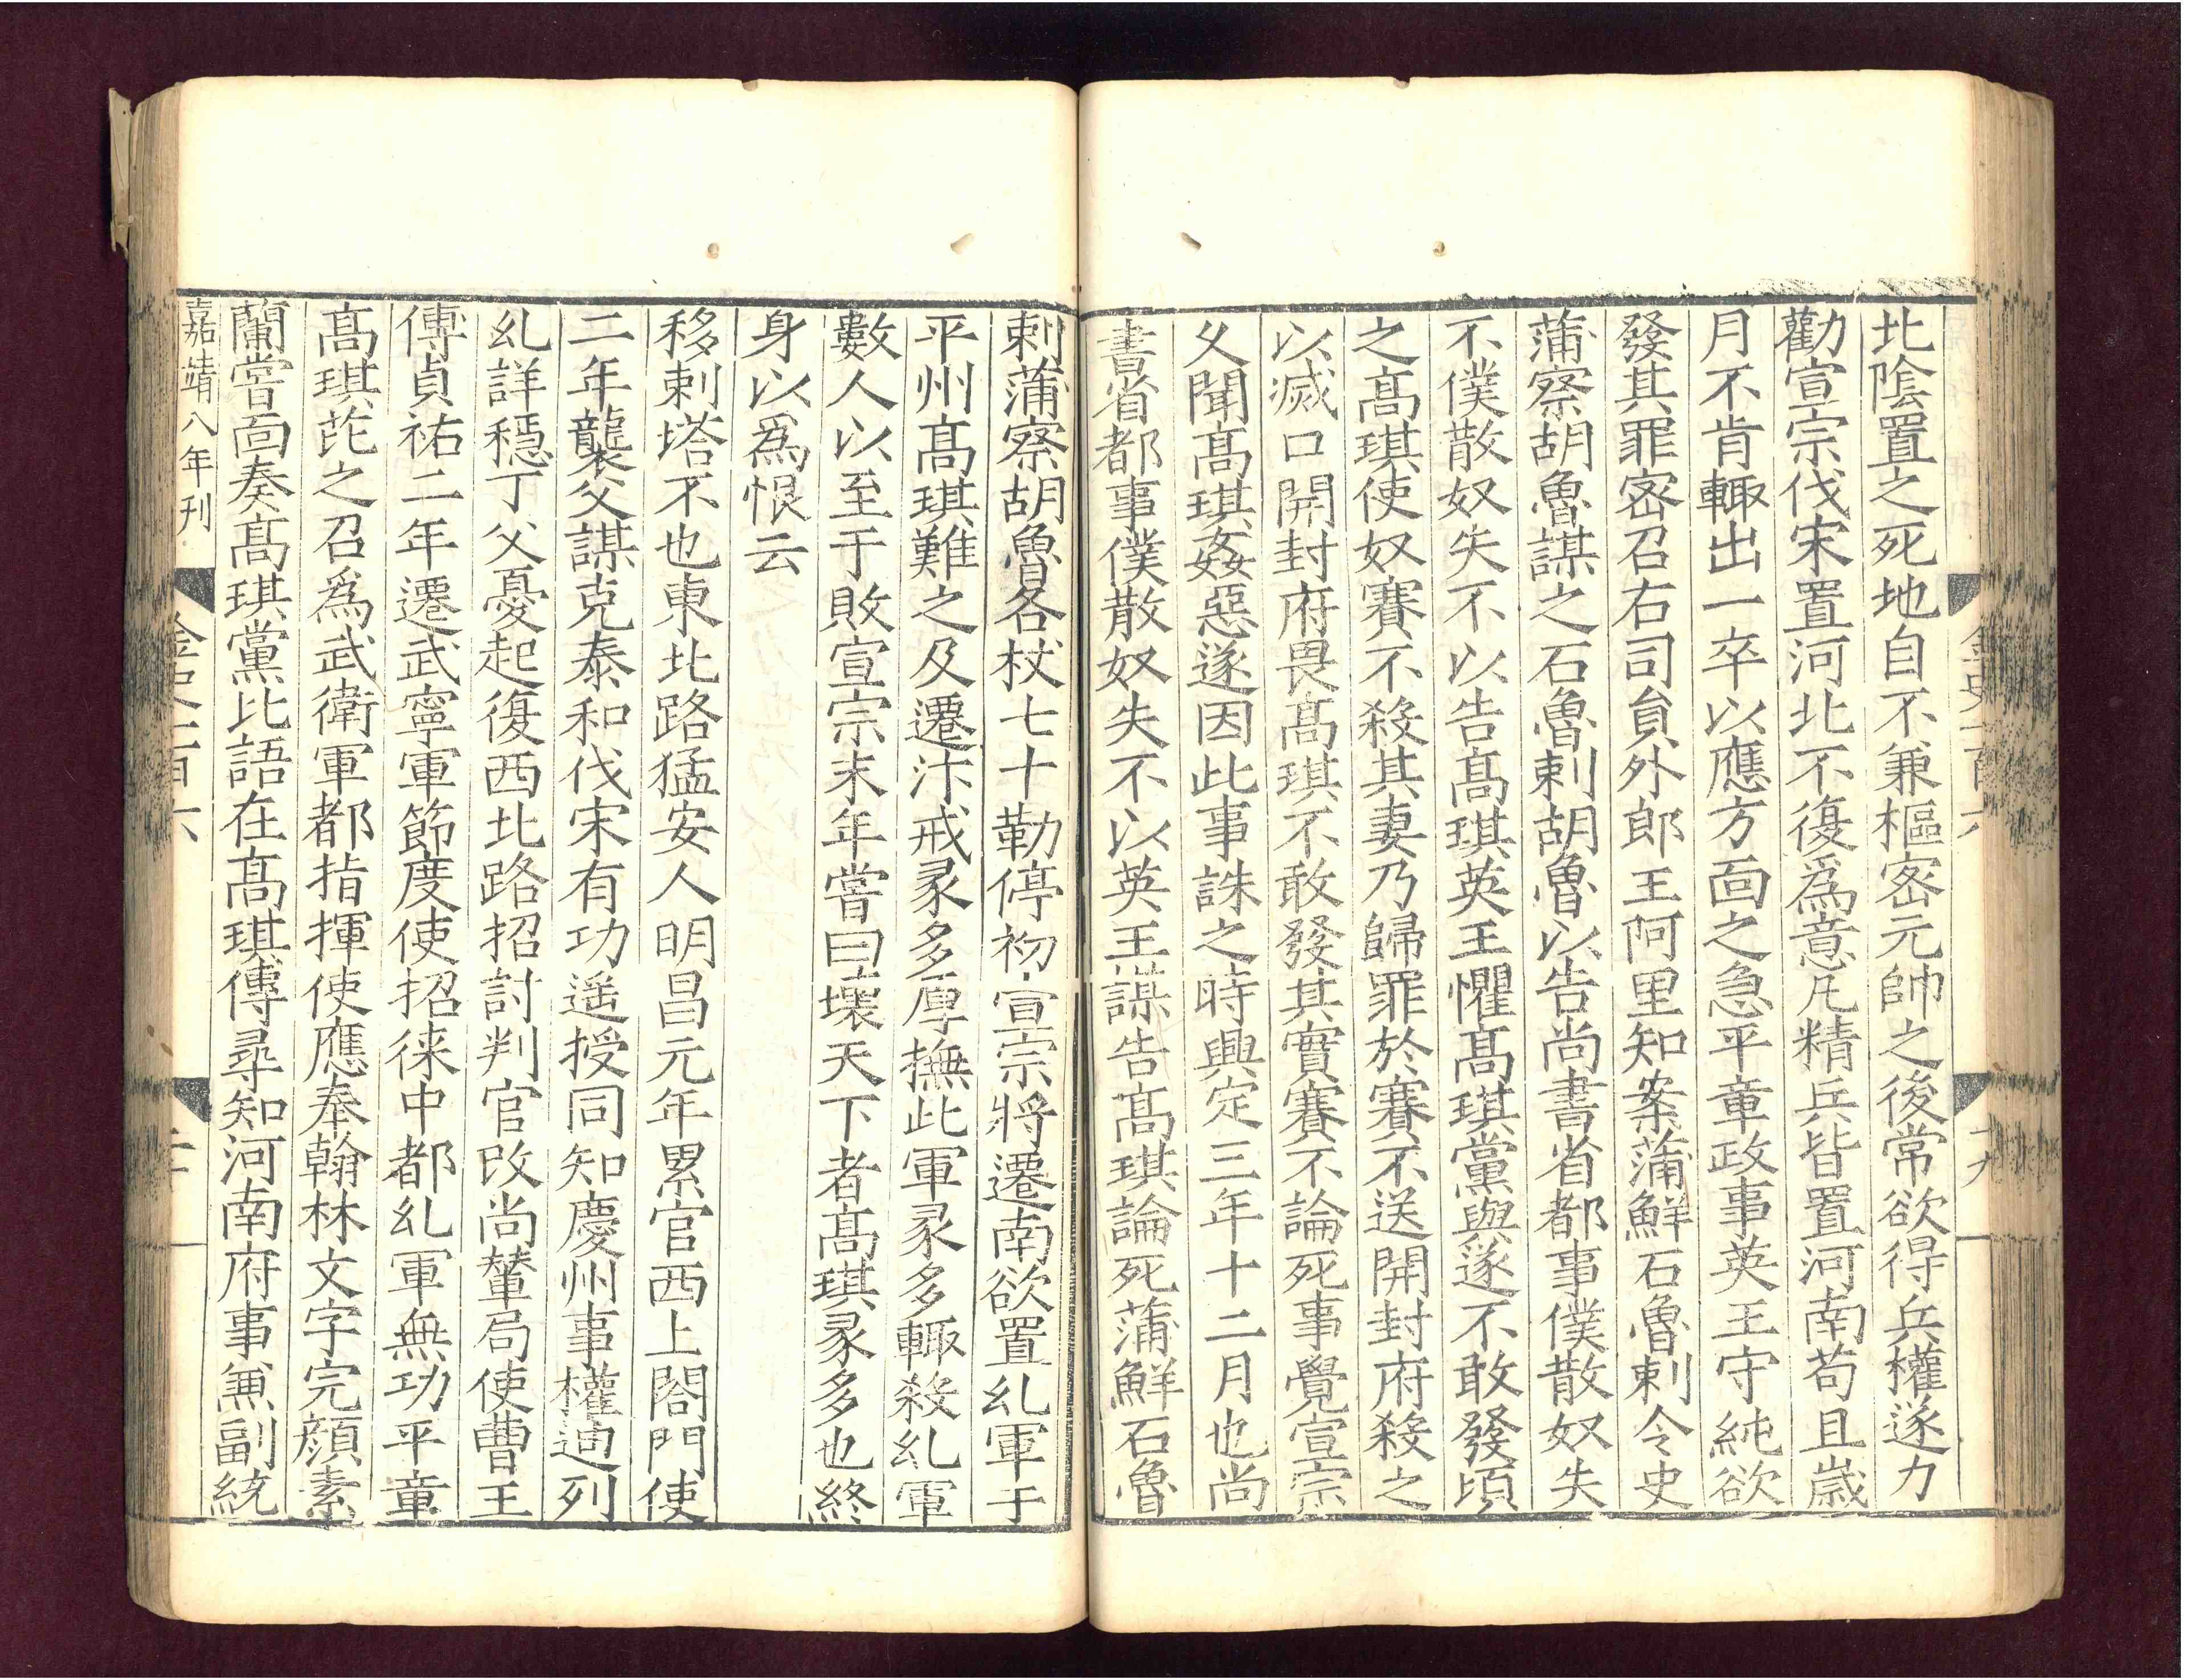 北陰置之死地自不兼樞密元帥之後常欲得兵權遂力
勸宣宗伐宋置河北不復爲意凡精兵皆置河南苟且歲
月不肯輙出一卒以應方面之急平章政事英王守純欲
發其罪密召右司貟外郎王阿里知案蒲鮮石魯剌令史
蒲察胡魯謀之石魯剌胡魯以告尚書省都事僕散奴失
不僕散奴失不以告髙琪英王懼髙琪黨與遂不敢發頃
之髙琪使奴賽不殺其妻乃歸罪於賽不送開封府殺之
以滅口開封府畏髙琪不敢發其實賽不論死事覺宣宗
久聞髙琪姦惡遂因此事誅之時興定三年十二月也尚
書省都事僕散奴失不以英王謀告髙琪論死蒲鮮石魯
剌蒲察胡魯各杖七十勒停初宣宗將遷南欲置乣軍于
平州髙琪難之及遷汴戒彖多厚撫此軍彖多輙殺乣軍
數人以至于敗宣宗末年嘗曰壞天下者髙琪彖多也終
身以爲恨云
移剌塔不也東北路猛安人明昌元年累官西上閤門使
二年襲父謀克泰和伐宋有功遥授同知慶州事權迪列
乣詳穩丁父憂起復西北路招討判官改尚輦局使曹王
傅貞祐二年遷武寧軍節度使招徠中都乣軍無功平章
髙琪芘之召爲武衛軍都指揮使應奉翰林文字完顔素
蘭嘗面奏髙琪黨比語在髙琪傳尋知河南府事兼副統
嘉靖八年刊
金史一百六
二十
金史一百六
十九